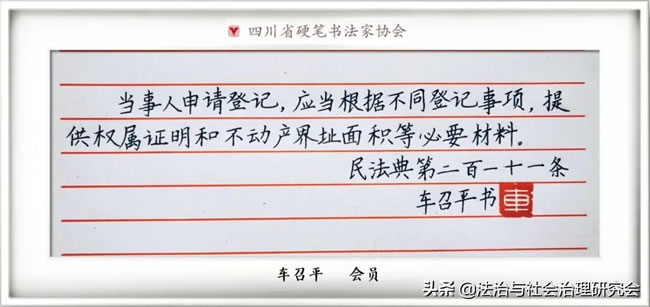 四川省硬笔书法家协会
当事人申请登记，应当根据不同登记事项，提
供权属证明和不动产界址面积等必要材料。
民法典第二百一十一条
车召平书
車
车召平 会员
头条@法治与社会治理研究会